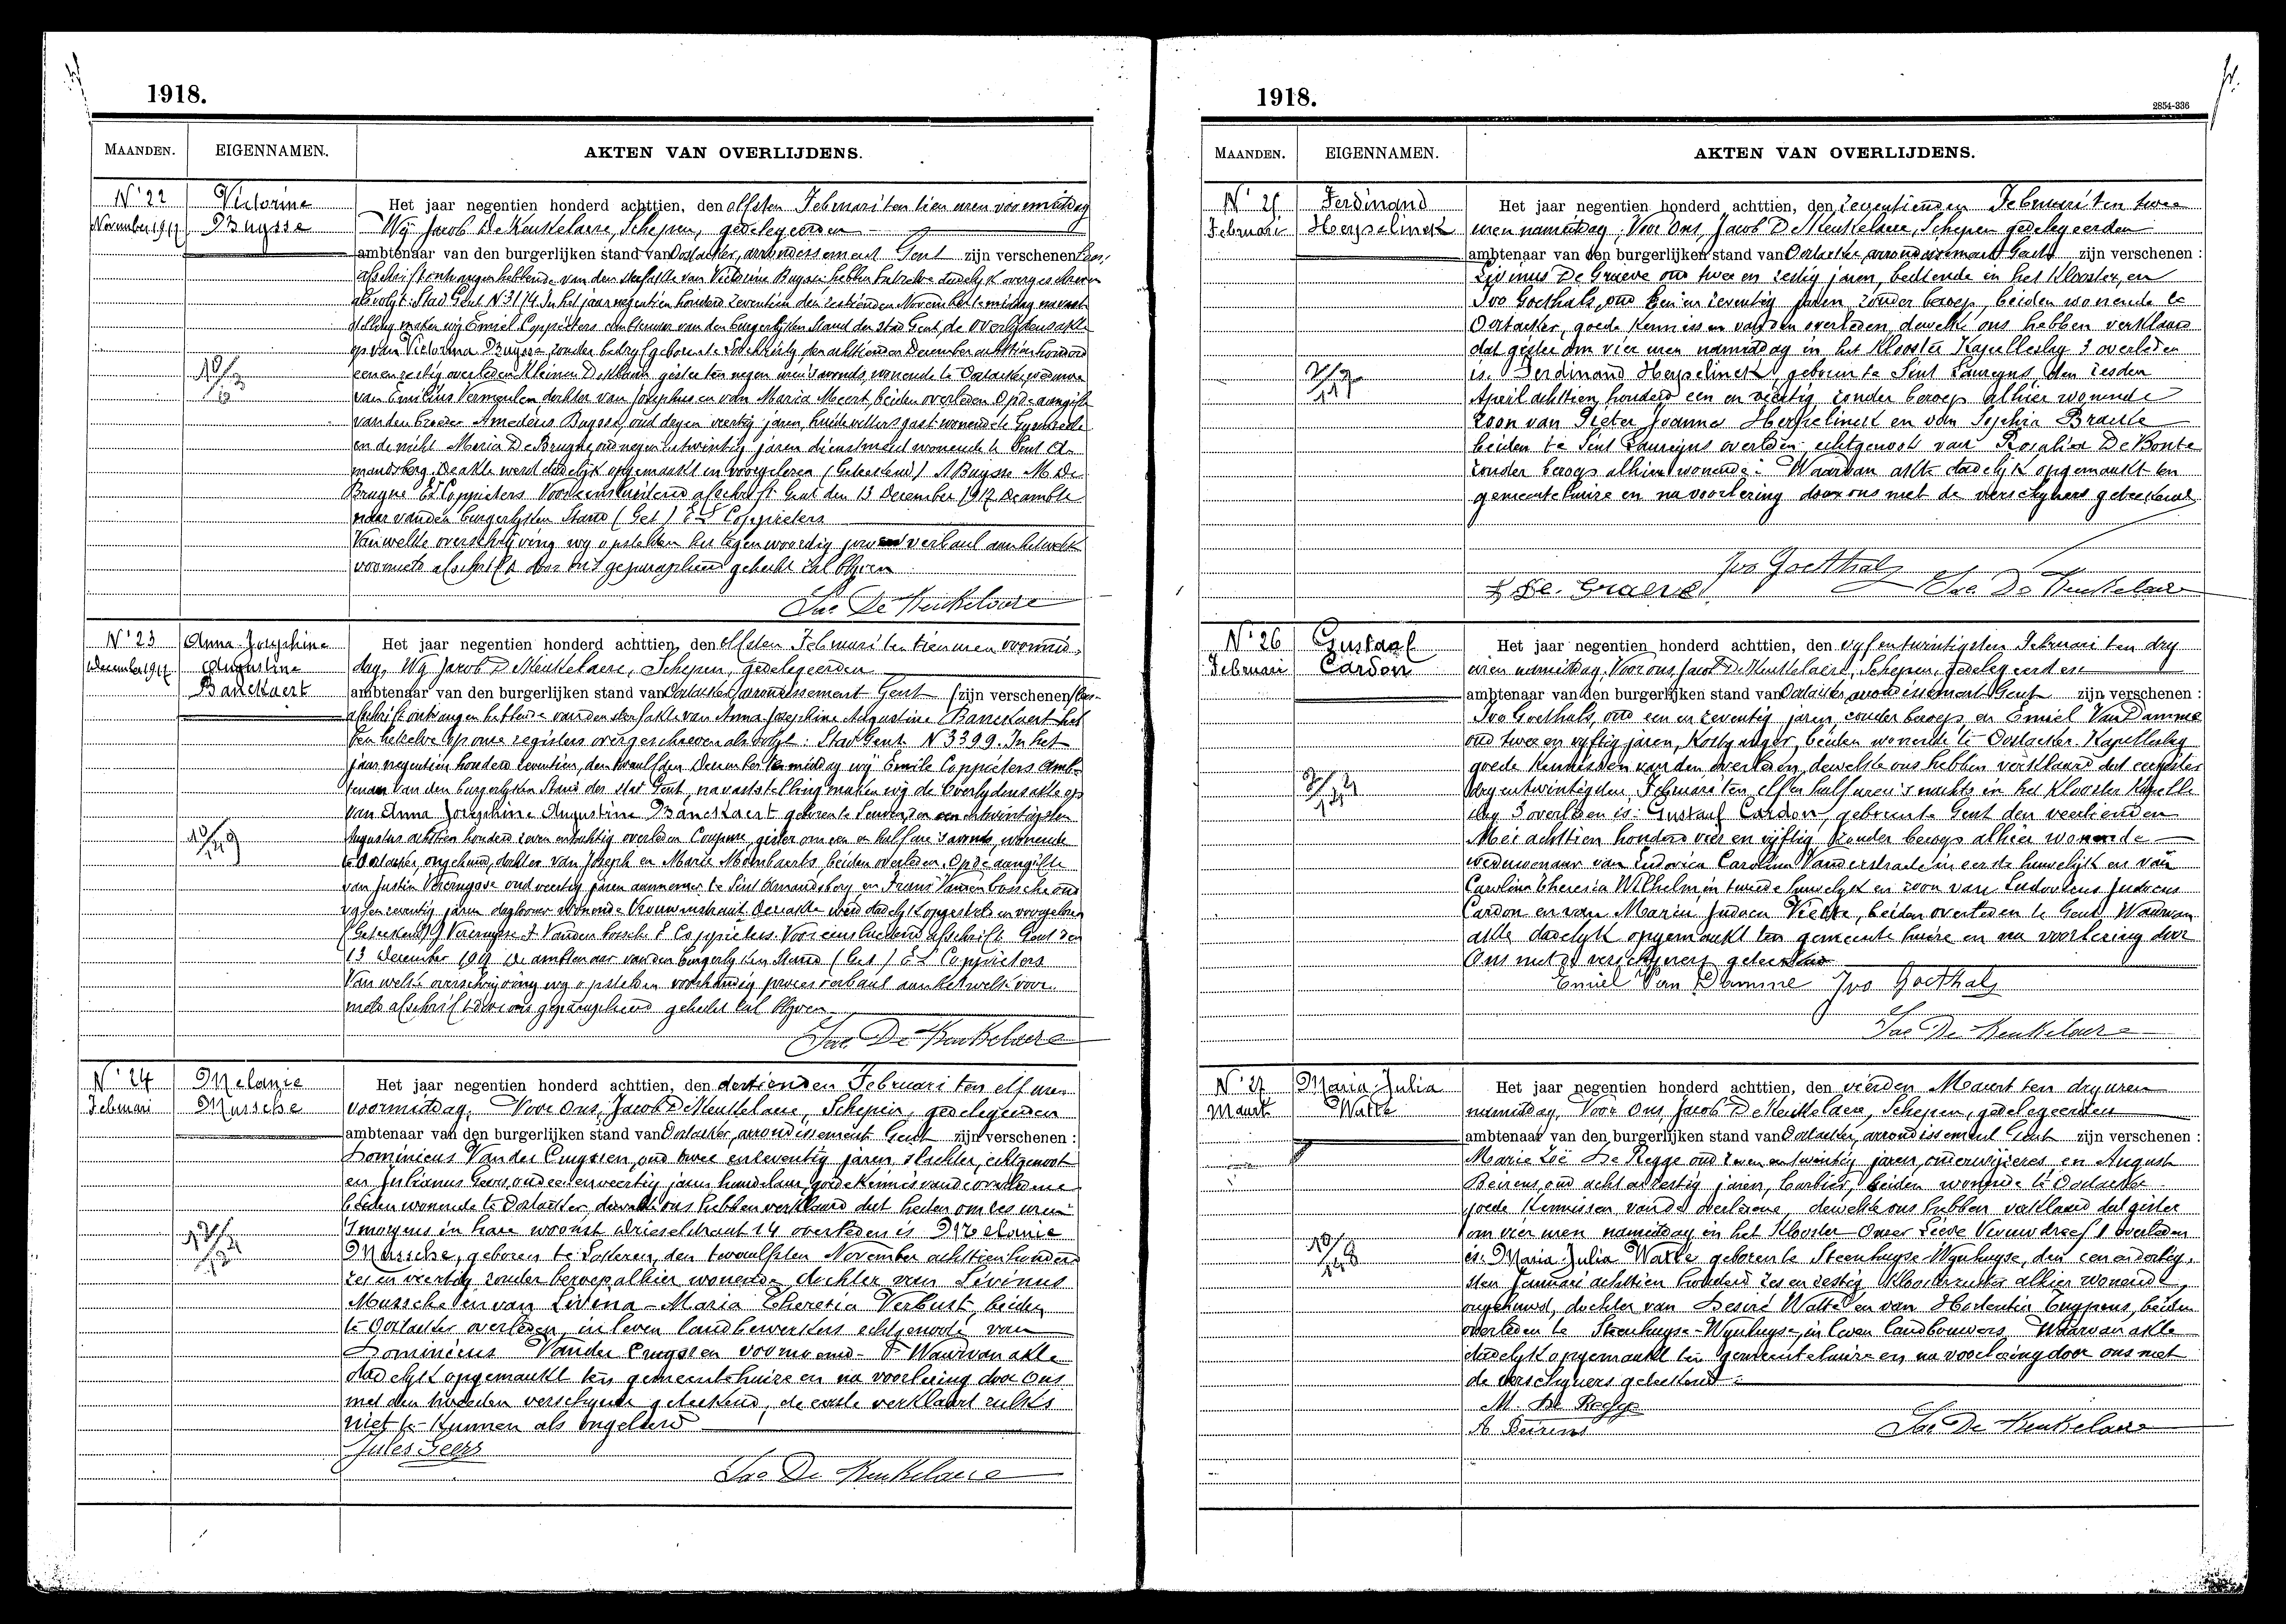 1918.
MAANDEN. EIGENNAMEN. AKTEN VAN OVERLIJDENS.
N° 22
November 1917
Victorine
Buysse
Het jaar negentien honderd achttien, den elfsten Februari ten tien uren voormiddag
Wij Jacob De Keukelaere, Schepen, gedelegeerden
ambtenaar van den burgerlijken stand van Oostacker, arrondissement Gent zijn verschenen
afschrift ontvangen hebbende van den sterfakte van Victorine Buysse hebben hetzelve dadelijk overgeschreven
als volgt: Stad Gent N 3114 In het jaar negentien honderd zeventien den zestienden November te middag na vast
stelling maken wij Emiel Coppieters ambtenaar van den burgerlijken Stand der stad Gent, de overlijdensakte
op van Victorina Buysse, zonder bedrijf geboren te Lochristy den achttienden December achttien honderd
een en zestig overleden gister ten negen ure 's avonds, wonende te Oostacker, weduwe
van Emilius Vermeulen dochter van Josephus en van Maria Meert, beiden overleden. Op de aangifte
van den broeder Amedeus Buysse, oud veertig jaren, wonende te
en de nicht Maria De Bruyne oud negen en twintig jaren dienstmeid wonende te Sint A-
mandsberg. De akte werd dadelijk opgemaakt en voorgelezen (Geteekend) A Buysse M De
Bruyne Ed Coppieters Voor eensluidend afschrift Gent den 13 December 1917 De ambte-
naar van den burgerlijken Stand (Get) Ed Coppieters
Van welke overschrijving wij opstelden het tegenwoordig proces verbaal aan hetwelk
voormeld afschrift door ons geparapheerd gehecht zal blijven
Jac De Keukelaere
N° 23
December 1917
Anna Josephine
Augustine
Banckaert
Het jaar negentien honderd achttien, den elfsten Februari ten tien uren voormid-
dag, Wij Jacob De Keukelaere, Schepen, gedelegeerden
ambtenaar van den burgerlijken stand van Oostacker, arrondissement Gent zijn verschenen
afschrift ontvangen hebbende van den sterfakte van Anna Josephine Augustine Banckaert heb
ben hetzelve op onze registers overgeschreven als volgt: Stad Gent N 3399. In het
jaar negentien honderd zeventien, den twaalfden December te middag wij Emile Coppieters amb-
tenaar van den burgerlijken Stand der stad Gent, na vaststelling maken wij de overlijdensakte op
van Anna Josephine Augustine Banckaert geboren te Leuven, den een en twintigsten
Augustus achttien honderd zeven en tachtig overleden Coupure, gister om een en half ure 's avonds, wonende
te Oostacker, ongehuwd, dochter van Joseph en Marie Mombaerts, beiden overleden. Op de aangifte
van Justin Vereruysse oud veertig jaren aannemer te Sint Amandsberg en Frans Vanden bossche oud
vijf en zeventig jaren daglooner wonende Vrouwenstraat. Deze akte werd dadelijk opgesteld en voorgelezen
13 December 1917 De ambtenaar van den burgerlijken Stand (Get) Ed Coppieters
Van welke overschrijving wij opstelden voorhandig proces verbaal aan hetwelk voor-
meld afschrift door ons geparapheerd gehecht zal blijven
Jac De Keukelaere
N° 24
Februari
Melanie
Mussche
Het jaar negentien honderd achttien, den dertienden Februari ten elf uren
voormiddag, Voor Ons, Jacob De Keukelaere, Schepen, gedelegeerden
ambtenaar van den burgerlijken stand van Oostacker, arrondissement Gent zijn verschenen :
Dominicus Vander Cruyssen, oud twee en zeventig jaren, echtgenoot
en Julianus Geers, oud een en veertig jaren handelaar, goede kennis van de overledene
beiden wonende te Oostacker, dewelke ons hebben verklaard dat heden om zes uren
's morgens in hare woonst Drieselstraat 14 overleden is Melanie
Mussche, geboren te Lokeren, den twaalfsten November achttien honderd
zes en veertig zonder beroep alhier wonende dochter van Livinus
Mussche en van Livina-Maria Theresia Verbust, beiden
te Oostacker overleden, in leven landbewerkers echtgenoote van
Dominicus Vander Cruyssen voornoemd. Waarvan akte
dadelijk opgemaakt ten gemeentehuize en na voorlezing door Ons
met den tweeden verschijner geteekend, de eerste verklaart zulks
niet te kunnen als ongeleerd
Jules Geers
Jac De Keukelaere
1918.
2854-336
MAANDEN. EIGENNAMEN. AKTEN VAN OVERLIJDENS.
N° 25
Februari
Ferdinand
Herpelinck
Het jaar negentien honderd achttien, den zeventienden Februari ten twee
uren namiddag, Voor Ons, Jacob De Keukelaere, Schepen gedelegeerden
ambtenaar van den burgerlijken stand van Oostacker, arrondissement Gent zijn verschenen :
Livinus De Graeve oud twee en zestig jaren, bediende in het Klooster, en
Ivo Goethals, oud een en zeventig jaren, zonder beroep, beiden wonende te
Oostacker, goede kennissen van den overleden, dewelke ons hebben verklaard
dat gister om vier uren namiddag in het Klooster Kapelleslag 3 overleden
is: Ferdinand Herpelinck, geboren te Sint Laureyns, den zesden
April achttien honderd een en veertig zonder beroep alhier wonende
zoon van Pieter Joannes Herpelinck en van Sophia Braekle
beiden te Sint Laureyns overleden, echtgenoot van Rosalia De Bonte
zonder beroep alhier wonende. Waarvan akte dadelijk opgemaakt ten
gemeentehuize en na voorlezing door ons met de verschijners geteekend
Ivo Goethals
L De Graeve
Jac De Keukelaere
N° 26
Februari
Gustaaf
Cardon
Het jaar negentien honderd achttien, den vijf en twintigsten Februari ten dry
uren namiddag, Voor ons, Jacob De Keukelaere, Schepen, gedelegeerden
ambtenaar van den burgerlijken stand van Oostacker, arrondissement Gent zijn verschenen :
Ivo Goethals, oud een en zeventig jaren, zonder beroep, en Emiel Van Damme
oud twee en vijftig jaren, Kostganger, beiden wonende te Oostacker Kapelleslag
goede kennissen van den overleden, dewelke ons hebben verklaard dat
dry en twintigsten Februari ten elf en half uren 's nachts in het Klooster Kapelle
slag 3 overleden is: Gustaaf Cardon, geboren te Gent den veertienden
Mei achttien honderd vier en vijftig, zonder beroep alhier wonende
weduwenaar van Ludovica Carolina Vanderstraete in eerste huwelijk en van
Carolina Theresia Wilhelm in tweede huwelijk en zoon van Ludovicus Judocus
Cardon en van Maria Judoca beiden overleden te Gent. Waarvan
akte dadelijk opgemaakt ten gemeentehuize en na voorlezing door
Ons met de verschijners geteekend
Emiel Van Damme Ivo Goethals
Jac De Keukelaere
N° 27
Maart
Maria Julia
Watté
Het jaar negentien honderd achttien, den vierden Maart ten dry uren
namiddag, Voor Ons Jacob De Keukelaere, Schepen, gedelegeerden
ambtenaar van den burgerlijken stand van Oostacker, arrondissement Gent zijn verschenen :
Marie Zoë De Regge oud zeven en twintig jaren, onderwijzeres, en August
Beirens, oud acht en zestig jaren, barbier, beiden wonende te Oostacker
goede kennissen van de overledene, dewelke ons hebben verklaard dat gister
om vier uren namiddag in het Klooster Onzer Lieve Vrouwdreef 1 overleden
is: Maria Julia Watté geboren te Steenhuyse-Wynhuyse, den een en dertig-
sten Januari achttien honderd zes en zestig, kloosterzuster alhier wonende,
ongehuwd, dochter van Desiré Watté en van Hortentia Tuypens, beiden
overleden te Steenhuyse-Wynhuyse, in leven landbouwers. Waarvan akte
dadelijk opgemaakt ten gemeentehuize en na voorlezing door ons met
de verschijners geteekend
M. De Regge
A Beirens
Jac De Keukelaere